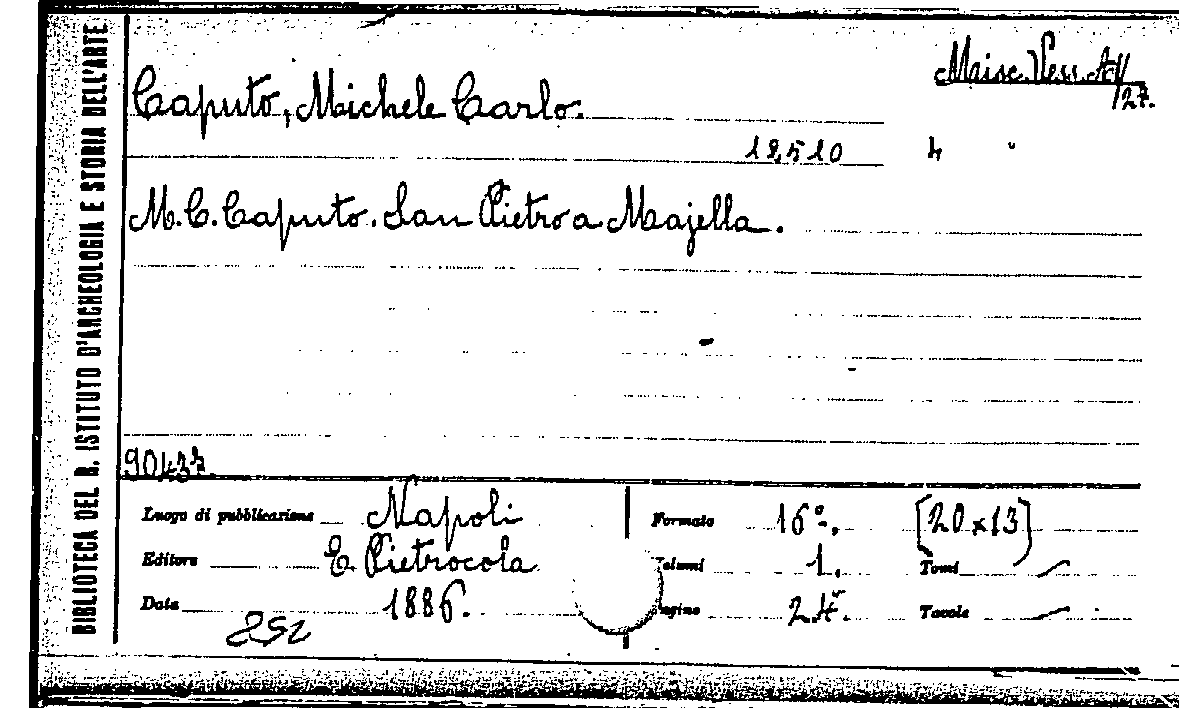 BIBLIOTECA DEL R. ISTITUTO D'ARCHEOLOGIA E STORIA DELL'ARTE
Caputo, Michele Carlo.
12510
M. C. Caputo. San Pietro a Majella.
90437
Luogo di pubblicazione Napoli
Editore E. Pietrocola
Data 1886.
852
Formato 16°. [20x13]
Volumi 1. Tomi
Pagine 24. Tavole